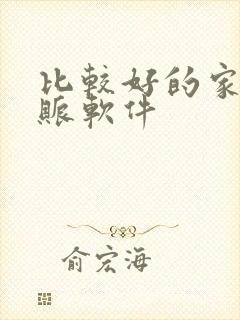 比較好的家
賬軟件
俞宏海